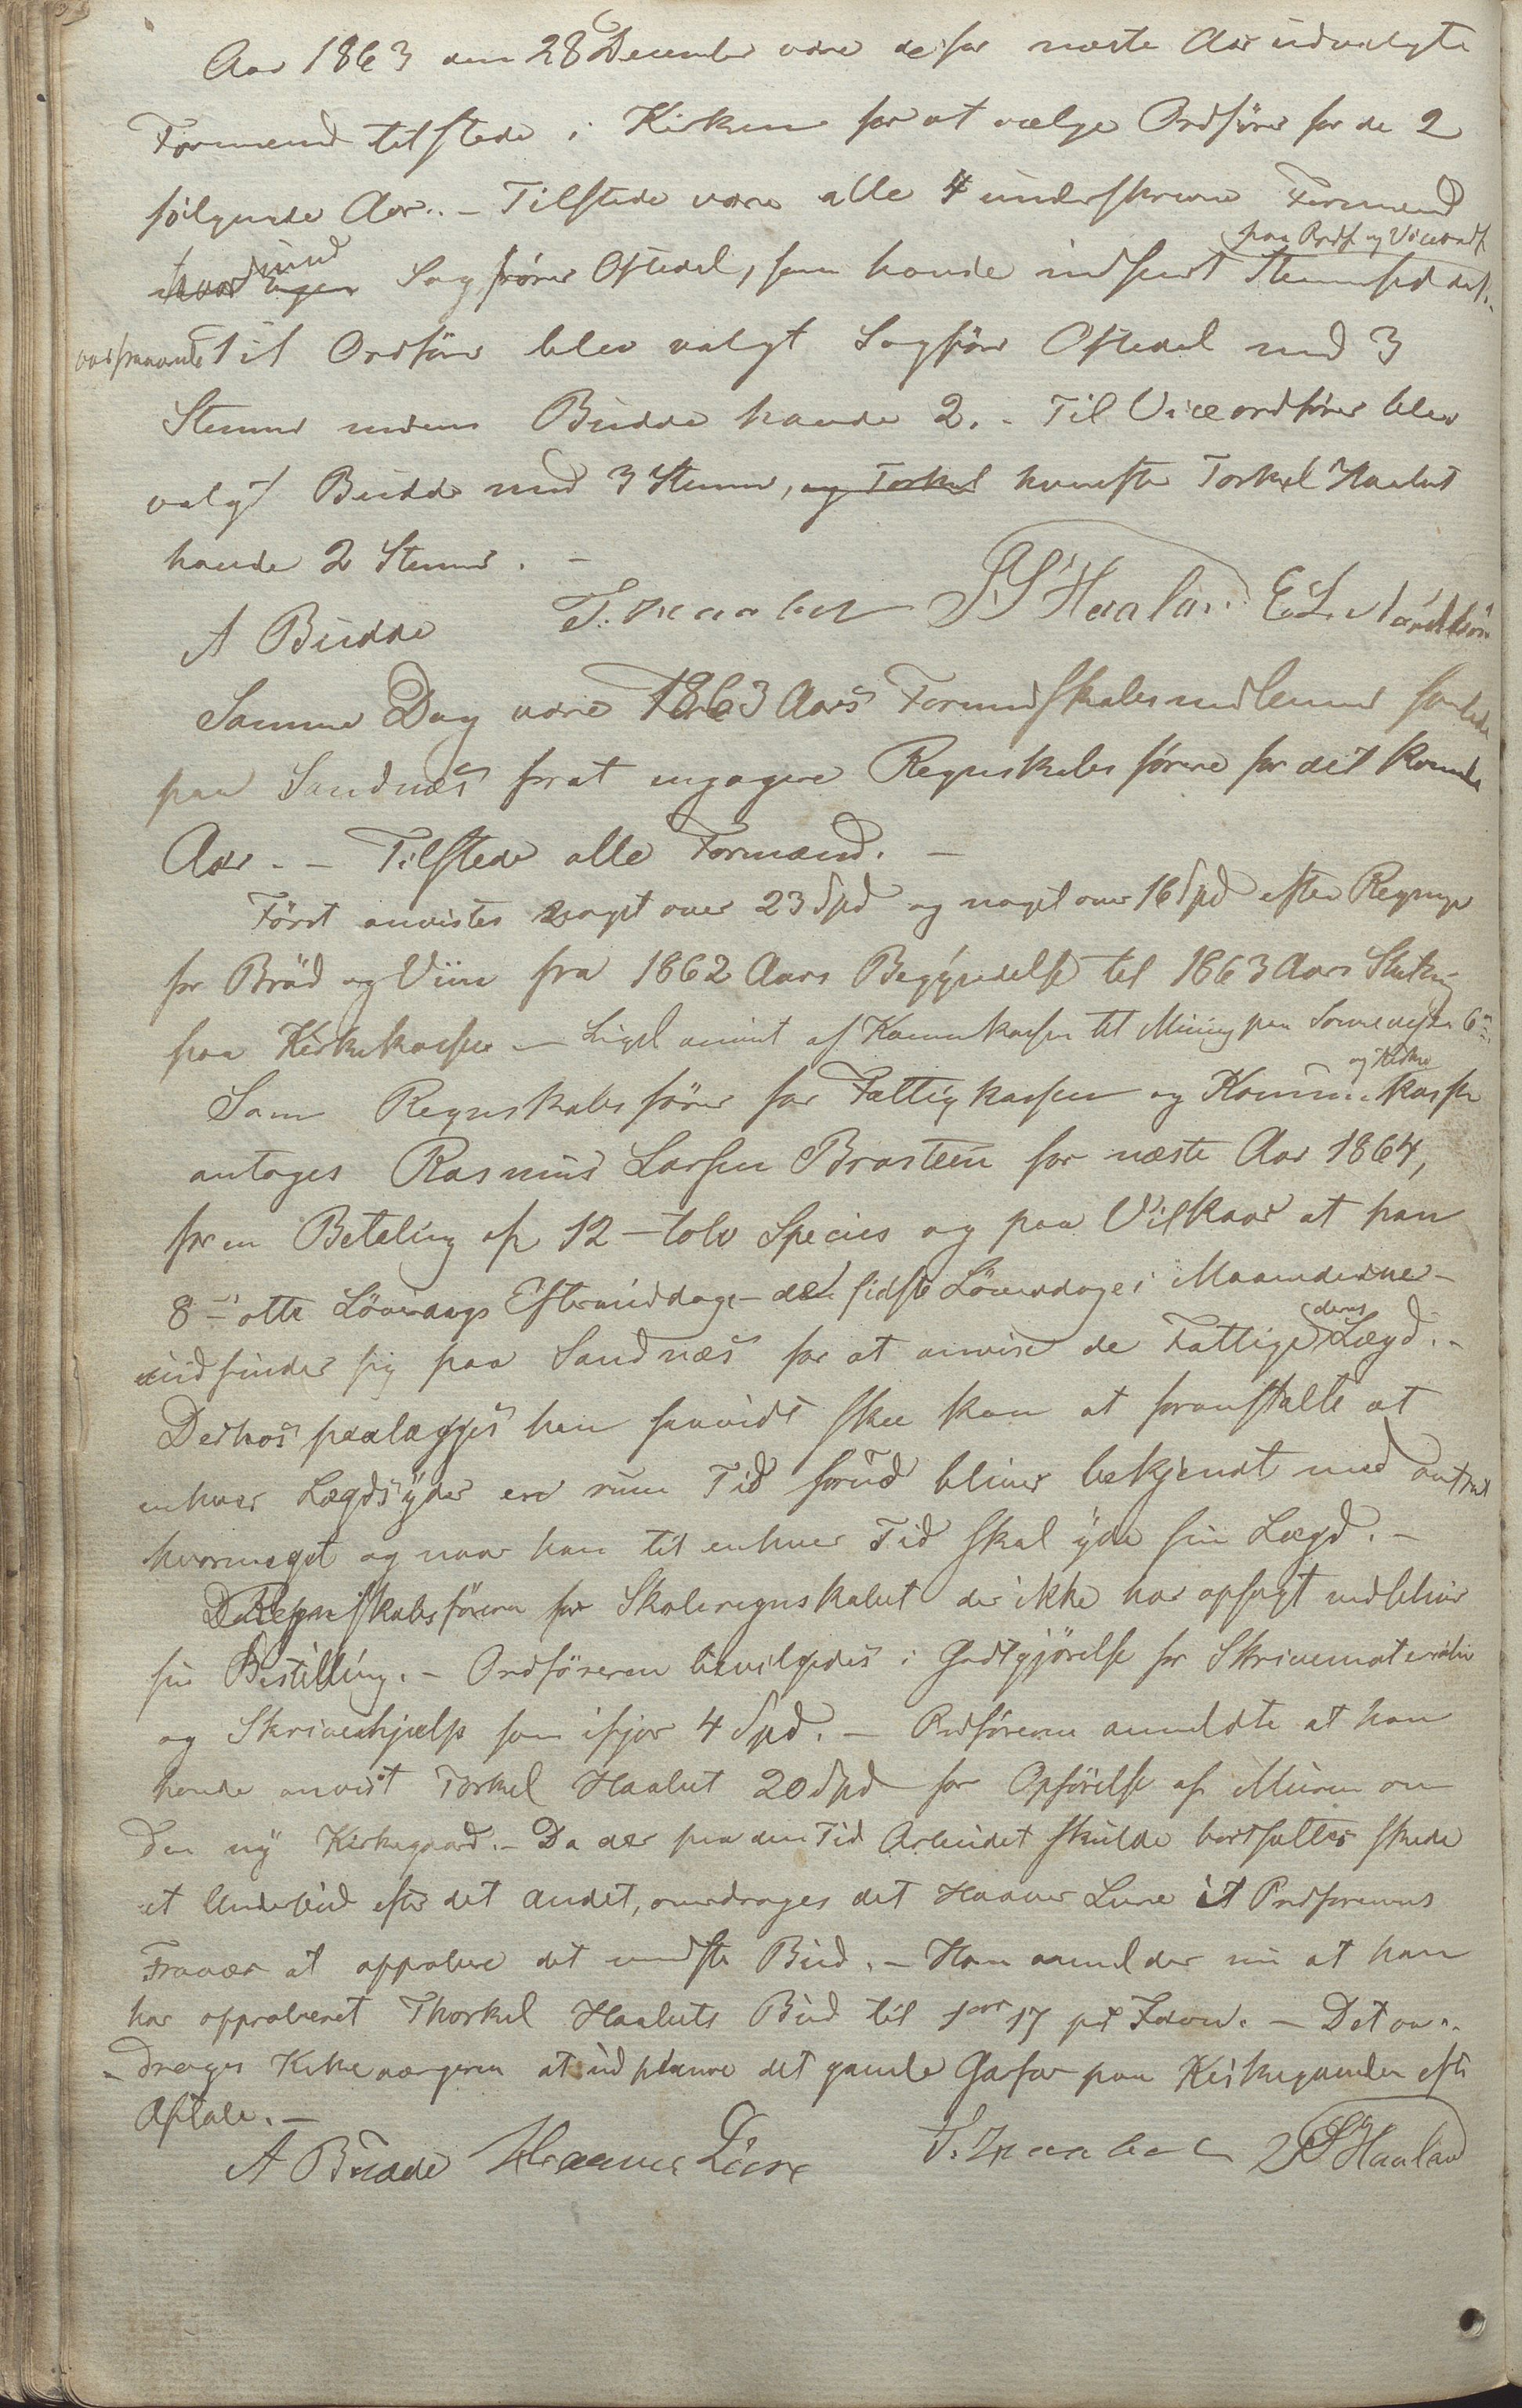 Aar 1863 den 28 December vare de for næste Aar udvalgte
Formænd tilstede i Kirken for at vælge Ordfører for de 2
følgende Aar. - Tilstede vare alle 4 underskrevne Formænd
paa Ordf. og Viceordf.
hvorimod Sagfører Oftedal, som havde indsendt Stemmeseddel
var fraværende. Til Ordfører blev valgt Sagfører Oftedal med 3
Stemmer medens Budde havde 2. - Til Viceordfører blev
valgt Budde med 3 Stemmer, og Torkel hvorefter Torkel Haabet
havde 2 Stemmer. -
A Budde T. Haabet Haaland E. L.
Samme Dag vare 1863 Aars Formandskabsmedlemmer samlede
paa Sandnæs for at engagere Regnskabsførere for det kommende
Aar. - Tilstede alle Formænd. -
Först anvistes noget over 23 Spd og noget over 16 Spd efter Regninger
for Bröd og Viin fra 1862 Aars Begyndelse til 1863 Aars Slutning
paa Kirkekassen - Ligel. anvist af Kommunekassen til paa
og Kirke
Som Regnskabsfører for Fattigkassen og Kommunekassen
antages Rasmus Larsen Brasteen for næste Aar 1864,
for en Betaling af 12 - tolv Species og paa Vilkaar at han
8 - otte Löverdags Eftermiddage - den sidste Löverdage i Maanederne -
indfinder sig paa Sandnæs for at anvise de Fattige deres Lægd. -
Derhos paalægges han saavidt skee kan at foranstalte at
enhver Lægdsyder en rum Tid forud bliver bekjendt med
hvormeget og naar han til enhver Tid skal yde sin Lægd. -
Regnskabsföreren for Skoleregnskabet der ikke har opsagt vedbliver
sin Bestilling. - Ordföreren bevilgedes i Godtgjörelse for Skrivematerialier
og Skrivehjælp som ifjor 4 Spd. - Ordföreren anmeldte at han
havde anvist Torkel Haabet 20 Spd for Opförelse af Muren om
den ny Kirkegaard. - Da der paa den Tid Arbeidet skulde bortsættes skede
et Underbud efter det andet, overdroges det Haaver Lure i Ordförerens
Fravær at approbere det mindste Bud. - Han anmelder nu at han
har approberet Thorkel Haabets Bud til 1 ort 17 pr Favn. - Det over-
drages Kirkeværgeren at udplanere det gamle paa Kirkegaarden efter
Aftale. -
A Budde Haaver Lure T. Haabet Haaland